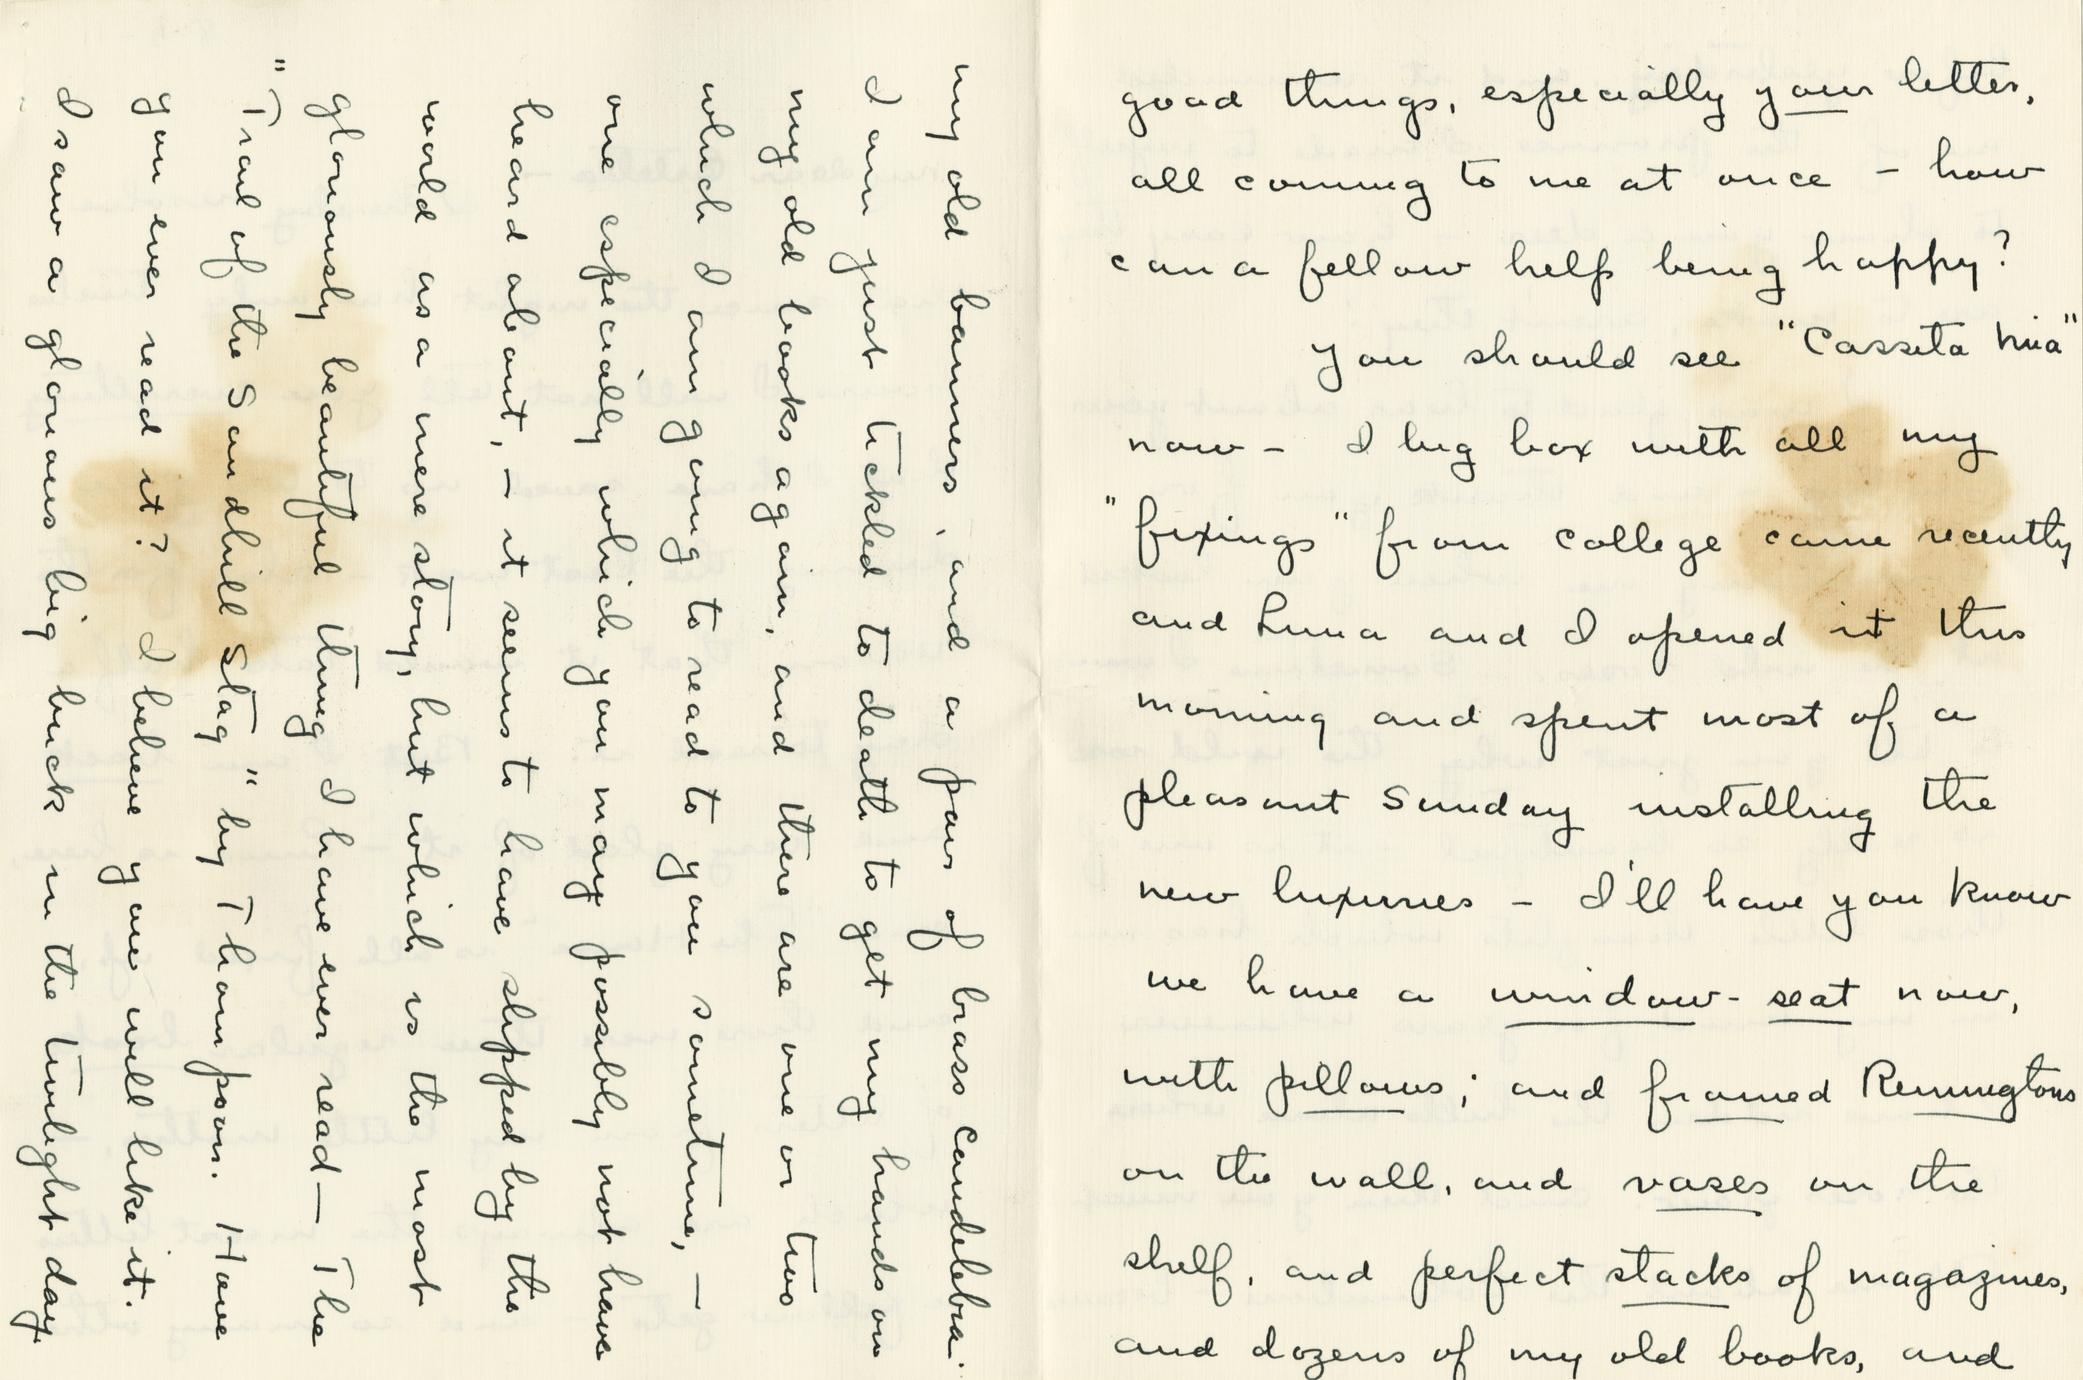 good things, especially your letter,
all coming to me at once – how
can a fellow help being happy?
You should see "Casseta Mia"
now – I big box with all my
"fixings" from college came recently
and Luna and I opened it this
morning and spent most of a
pleasant Sunday installing the
new luxuries – I'll have you know
we have a window-seat now,
with pillows; and framed Remingtons
on the wall, and vases on the
shelf, and perfect stacks of magazines,
and dozens of my old books, and
my old banners, and a pair of brass candelebra.
I am just tickled to death to get my hands on
my old books again, and there are one or two
which I am going to read to you sometime, –
one especially which you may possibly not have
heard about, – it seems to have slipped by the
world as a mere story, but which is the most
gloriously beautiful thing I have ever read – The
"Trail of the Sandhill Stag" by Thompson. Have
you ever read it? I believe you will like it.
I saw a glorious big buck in the twilight day